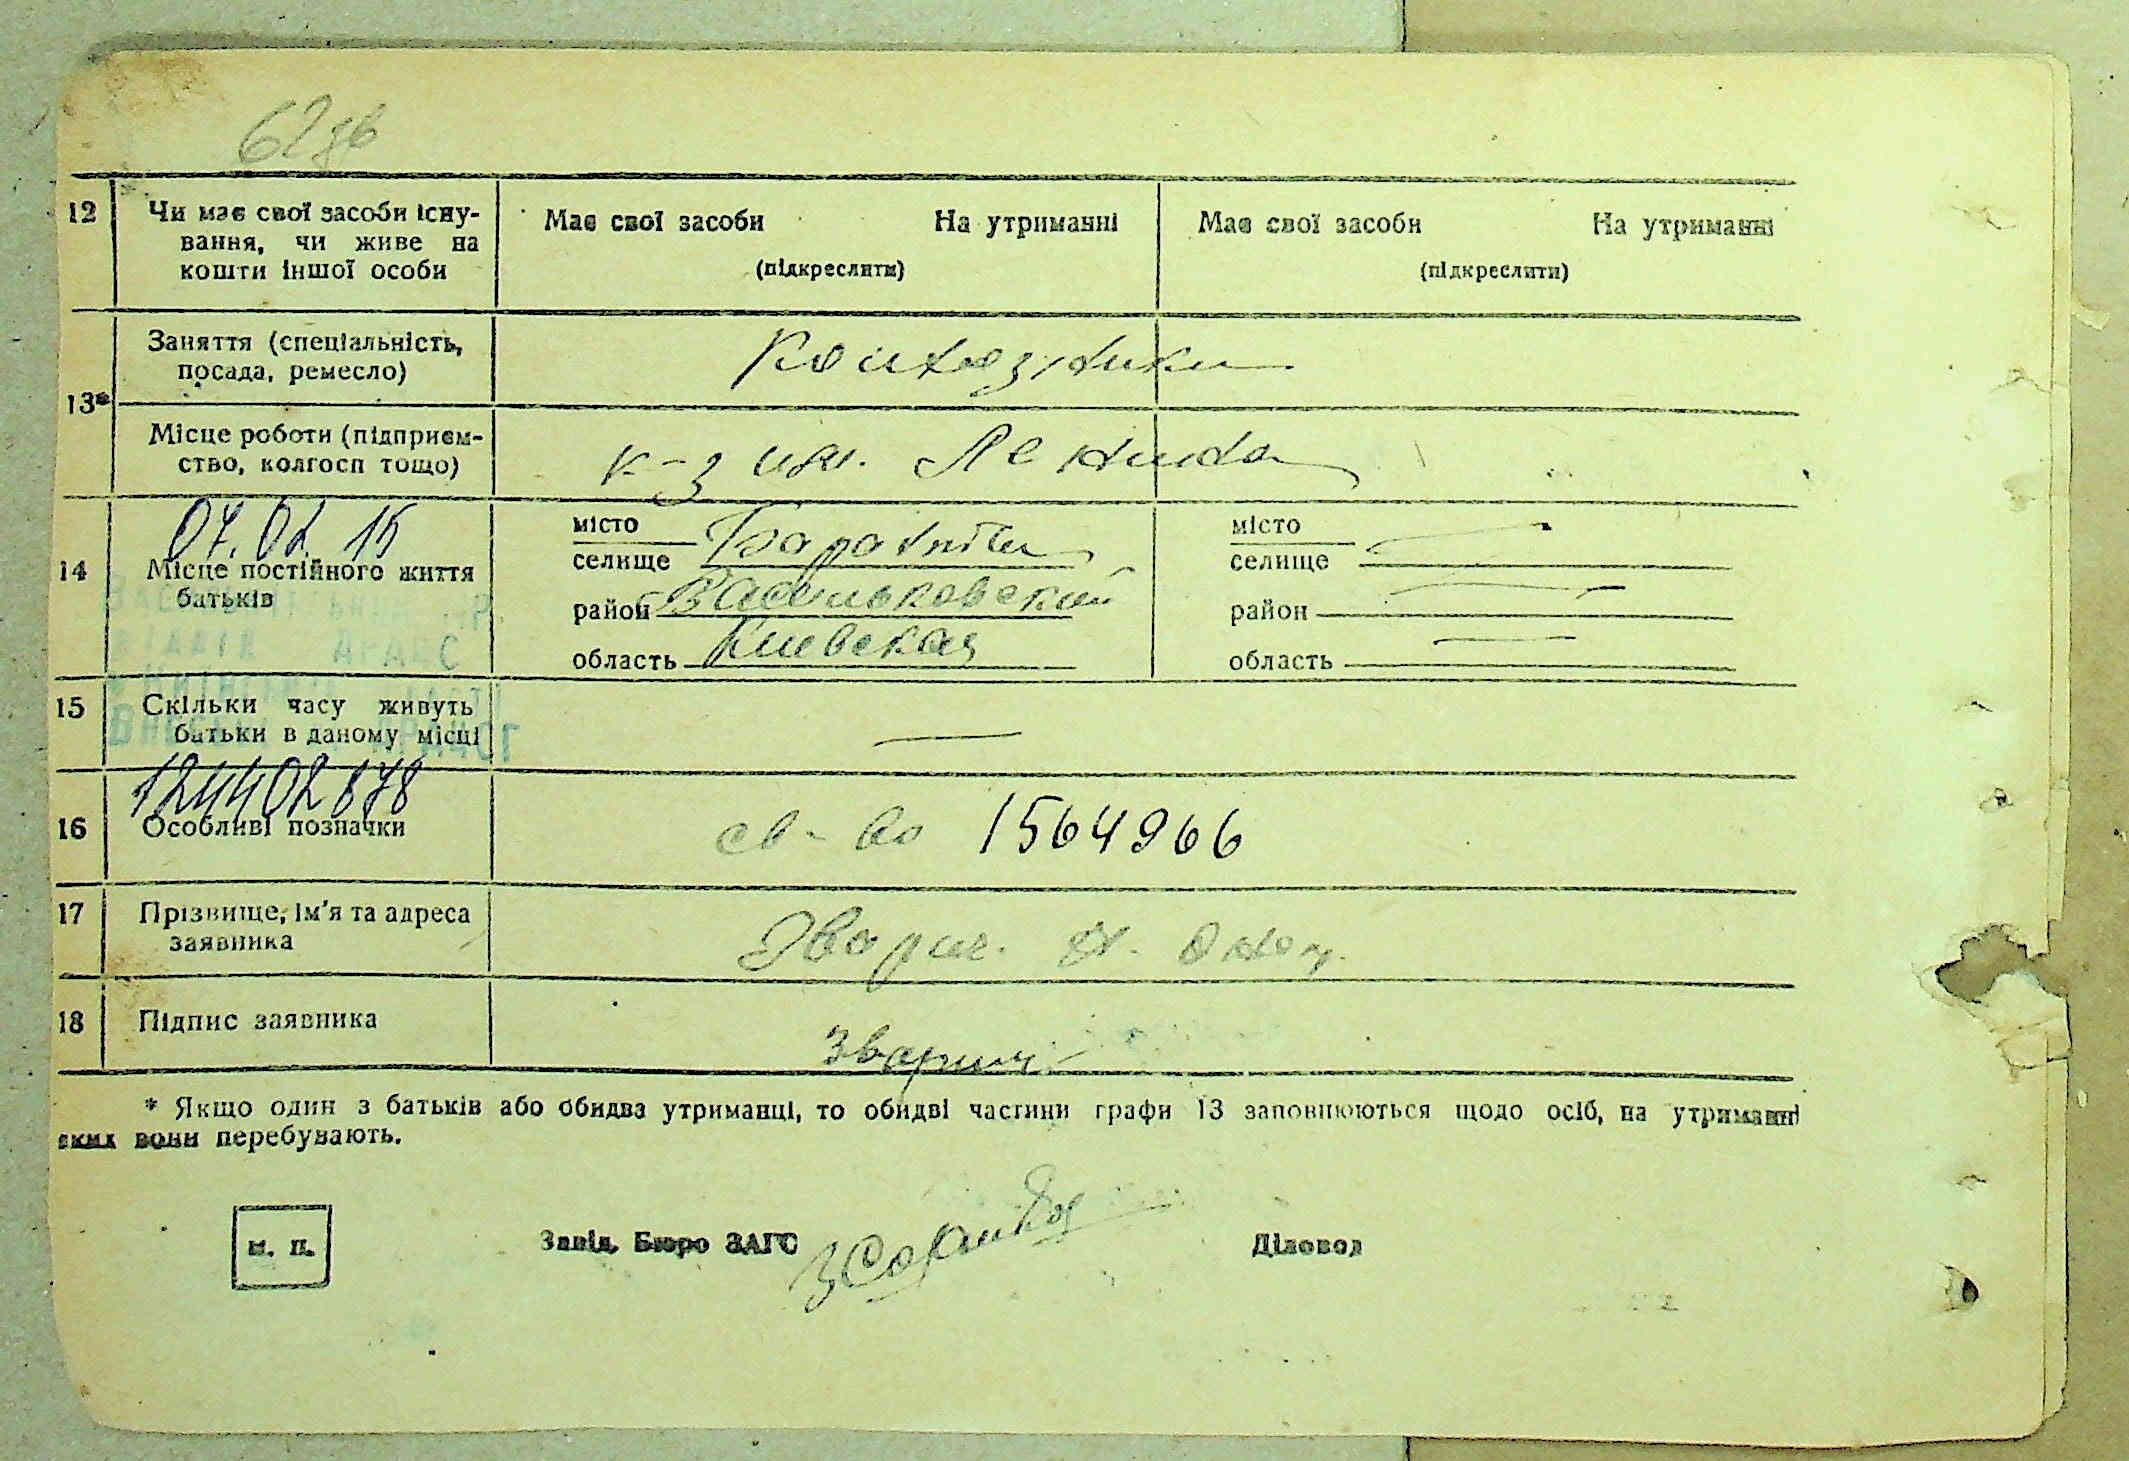 62 зв
12 Чи має свої засоби існу-
вання, чи живе на
кошти іншої особи
Має свої засоби На утриманні
(підкреслити)
Має свої засоби На утриманні
(підкреслити)
13*
Заняття (спеціальність,
посада, ремесло)
Колхозники
Місце роботи (підприєм-
ство, колгосп тощо)
к-з им. Ленина
14 Місце постійного життя
батьків
місто
селище
район Васильковский
область Киевская
місто
селище
район
область
15 Скільки часу живуть
батьки в даному місці
—
16 Особливі позначки
св-во 1564966
17 Прізвище, ім'я та адреса
заявника
Зварич
18 Підпис заявника
Зварич
* Якщо один з батьків або обидва утриманці, то обидві частини графи 13 заповнюються щодо осіб, на утриманні
яких вони перебувають.
м. п.
Завід. Бюро ЗАГС
Діловод